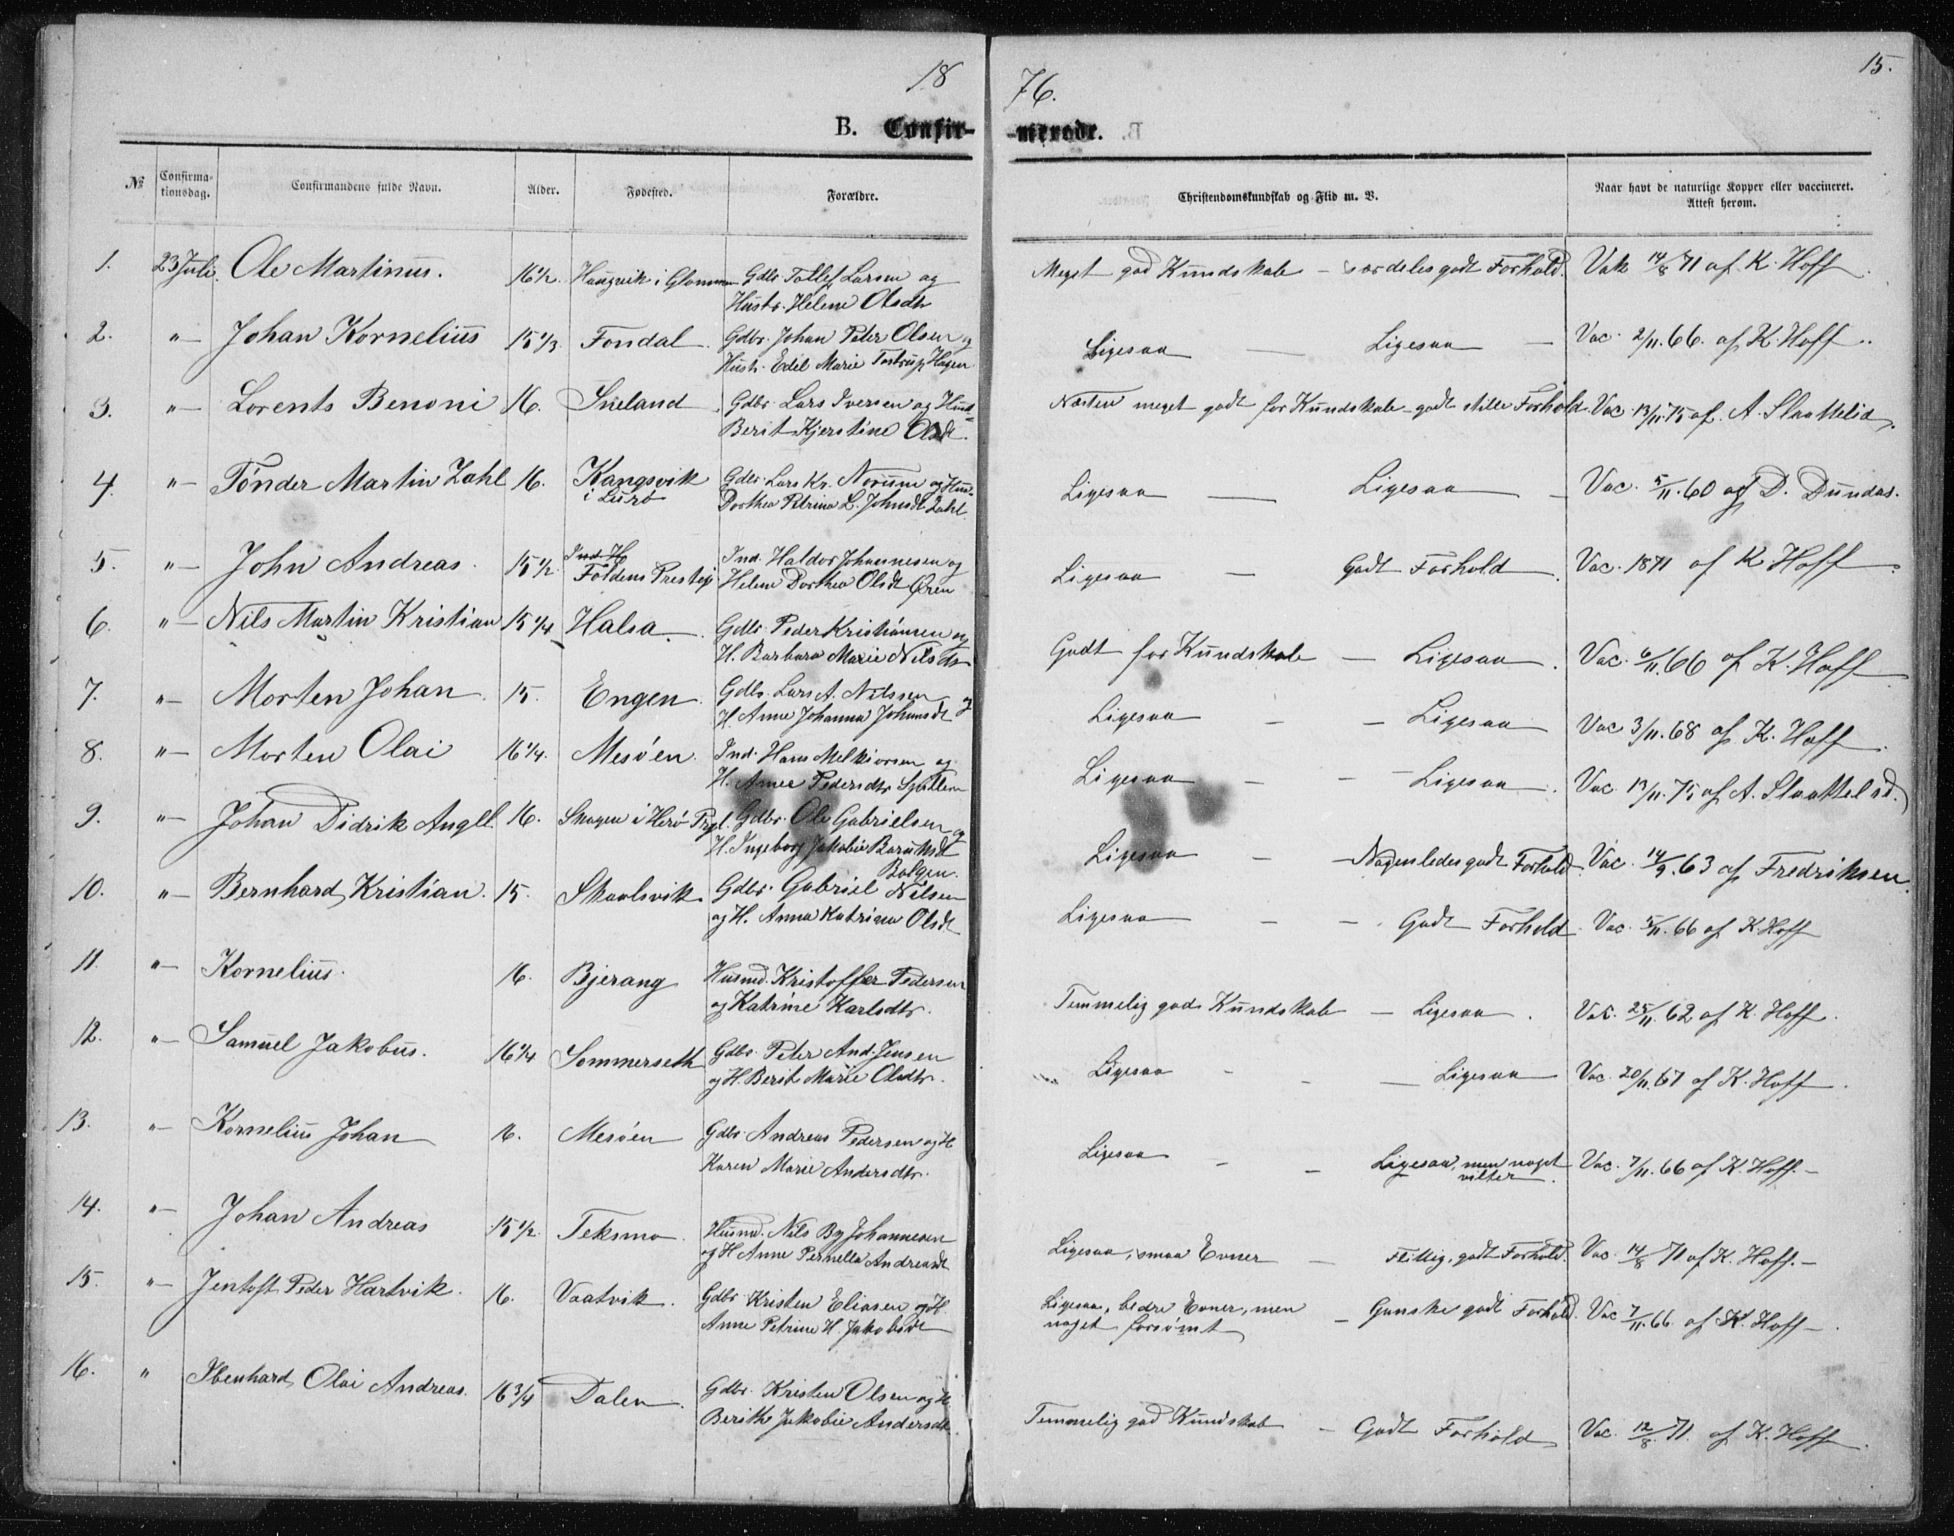 18
76.
15.
B. Confir-
-merede.
№
Confirma-
tionsdag.
Confirmandens fulde Navn.
Alder.
Fødested.
Forældre.
Christendomskundskab og Flid m. V.
Naar havt de naturlige Kopper eller vaccineret.
Attest herom.
1. 23 Juli. Ole Martinus. 16 1/2. Haugvik i Glommen Gdbr. Tollef Larsen og
Hustr. Helene Olsdtr
Meget god Kundskab – særdeles godt Forhold. Vak 14/8 71 af K. Hoff.
2. " – Johan Kornelius 15 1/3. Fondal. Gdbr. Johan Peter Olsen og
Hustr. Edel Marie Hagen
Ligesaa – Ligesaa – Vac. 2/11. 66. af K. Hoff.
3. " – Lorents Benoni 16. Sneland. Gdbr. Lars Iversen og Hust
Berit Kjerstine Olsdt.
Næsten meget godt for Kundskab – godt stille Forhold. Vac. 13/11. 75 af. A. Slaattelid.
4. " – Tønder Martin Zahl 16. Kangsvik
i Lurø
Gdbr. Lars Kr. Norum og Hus.
Dorthea Petrina L. Johnsdt Zahl.
Ligesaa – Ligesaa – Vac. 5/11. 60 af D. Dundas.
5. " – John Andreas. 15 1/2. Ind. H
Foldens Prestgj
Ind. Haldor Johannesen og
Helene Dorthea Olsdt Øren
Ligesaa – Godt Forhold. Vac. 1871 af K Hoff.
6. " – Nils Martin Kristian 15 1/4 Halsa. Gdbr. Peder Kristiansen og
H. Barbara Marie Nilsdtr
Godt for Kundskab – Ligesaa. Vac. 6/11. 66 af K. Hoff
7. " – Morten Johan. 15. Engen. Gdbr. Lars A. Nilssen og
H. Anne Johanna Johansdt
Ligesaa – – Ligesaa – Vac 3/11. 68 af K. Hoff.
8. " – Morten Olai 16 1/4. Mesøen. Ind. Hans Melkiorsen og
H. Anne Pedersdtr
Ligesaa – – Ligesaa. Vac 13/11. 75 af A. Slaattelid.
9. " – Johan Didrik Angell. 16. Skagen i Herø Prgl. Gdbr. Ole Gabrielsen og
H. Ingeborg Jakobie
Bolgen.
Ligesaa – – Nogenledes godt Forhold. Vac. 14/9. 63 af Fredriksen.
10. " – Bernhard Kristian. 15. Skavlsvik Gdbr. Gabriel Nilsen
og H. Anna Katrina Olsdt
Ligesaa – – Godt Forhold. Vac. 5/11. 66 af K. Hoff
11. " – Kornelius. 16. Bjerang Husmd. Kristoffer Pedersen
og Katrine Karlsdtr.
Temmelig god Kundskab – Ligesaa. Vac. 25/11. 62 af K. Hoff.
12. " – Samuel Jakobus. 16 1/4 Sommerseth Gdbr. Peter And. Jensen
og H. Berit Marie Olsdtr.
Ligesaa – – – Ligesaa – Vac. 20/11. 67 af K. Hoff.
13. " – Kornelius Johan 16. Mesøen Gdbr. Andreas Pedersen og H.
Karen Marie Andersdtr.
Ligesaa – – Ligesaa, men noget
vilter.
Vac. 7/11. 66 af K. Hoff. –
14. " – Johan Andreas 15 1/2. Teksmo. Husmd. Nils By Johannesen
og H. Anne Pernella Andreasdt
Ligesaa, smaa Evner – Flittig, godt Forhold. Vac. 14/8 71 af K. Hoff. –
15. " – Jentoft Peder Hartvik. 16. Vaatvik. Gdbr. Kristen Eliasen og H.
Anne Petrine H. Jakobsdt
Ligesaa, bedre Evner, men
noget forsømt
– Ganske godt Forhold. Vac 7/11. 66. af K. Hoff –.
16. " Ibenhard Olai Andreas. 16 3/4 Dalen. Gdbr. Kristen Olsen og H.
Berithe Jakobie Andersdtr.
Temmelig god Kundskab – Godt Forhold Vac. 12/8. 71. af K. Hoff.